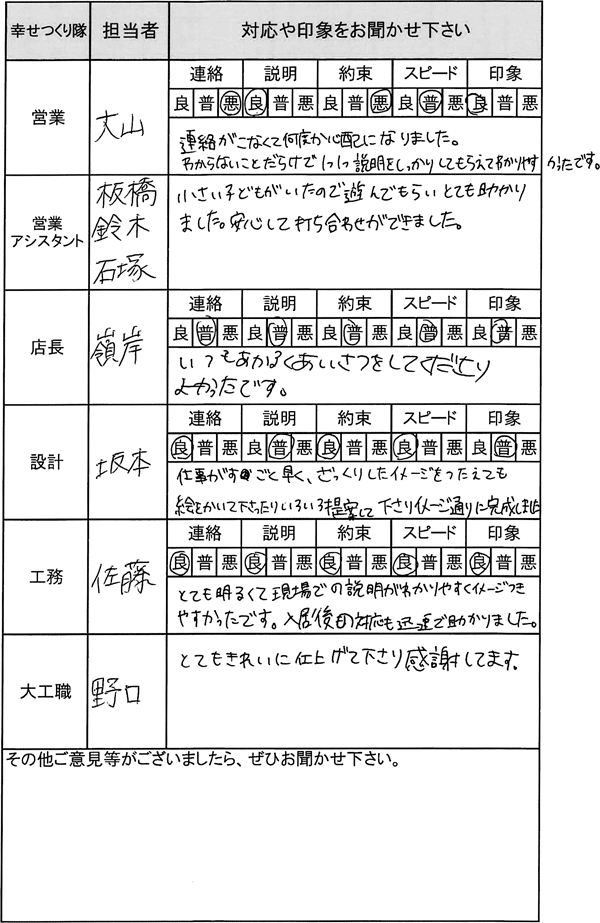 幸せつくり隊 担当者 対応や印象をお聞かせ下さい
営業 丈山
連絡 説明 約束 スピード 印象
良 普 悪 良 普 悪 良 普 悪 良 普 悪 良 普 悪
連絡がこなくて何度か心配になりました。
わからないことだらけで1つ1つ説明をしっかりしてもらえてわかりやすかったです。
営業
アシスタント
板橋
鈴木
石塚
小さい子どもがいたので遊んでもらいとても助かり
ました。安心して打ち合わせができました。
店長 嶺岸
連絡 説明 約束 スピード 印象
良 普 悪 良 普 悪 良 普 悪 良 普 悪 良 普 悪
いつもあかるくあいさつをしてくださり
よかったです。
設計 坂本
連絡 説明 約束 スピード 印象
良 普 悪 良 普 悪 良 普 悪 良 普 悪 良 普 悪
仕事がすごく早く、ざっくりしたイメージをつたえても
絵をかいて下さったりいろいろ提案して下さりイメージ通りに完成しました
工務 佐藤
連絡 説明 約束 スピード 印象
良 普 悪 良 普 悪 良 普 悪 良 普 悪 良 普 悪
とても明るくて現場での説明がわかりやすくイメージつき
やすかったです。入居後の対応も迅速で助かりました。
大工職 野口
とてもきれいに仕上げて下さり感謝してます。
その他ご意見等がございましたら、ぜひお聞かせ下さい。